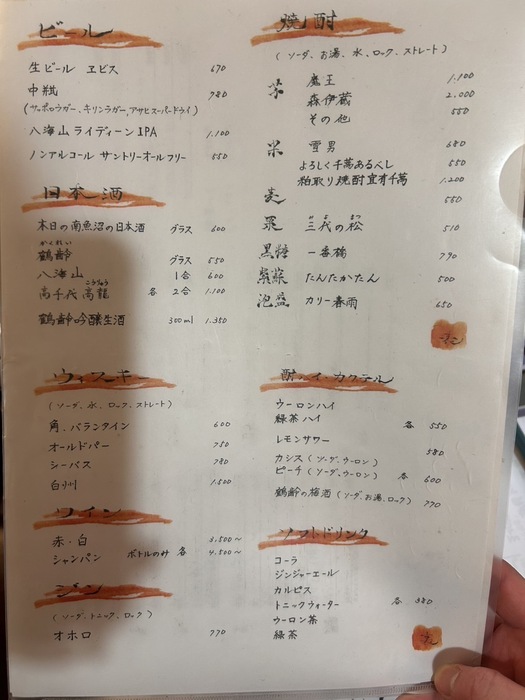 ビール
生ビール ヱビス 670
中瓶 780
(サッポロラガー、キリンラガー、アサヒスーパードライ)
八海山ライディーンIPA 1.100
ノンアルコール サントリーオールフリー 550
日本酒
本日の南魚沼の日本酒 グラス 600
かくれい
鶴齢 グラス 550
八海山 1合 600
こうりゅう
高千代 高龍 各 2合 1.100
鶴齢吟醸生酒 300ml 1.350
ウィスキー
(ソーダ、水、ロック、ストレート)
角、バランタイン 600
オールドパー 750
シーバス 780
白州 1.500
ワイン
赤・白 3.500〜
シャンパン ボトルのみ 各 4.500〜
ジン
(ソーダ、トニック、ロック)
オホロ 770
焼酎
(ソーダ、お湯、水、ロック、ストレート)
芋 魔王 1.100
森伊蔵 2.000
その他 550
米 雪男 680
よろしく千萬あるべし 550
粕取り焼酎宜有千萬 1.200
麦 550
粟 三代の松 510
黒糖 一番橋 790
紫蘇 たんたかたん 500
泡盛 カリー春雨 650
酎・ハイ・カクテル
ウーロンハイ
緑茶ハイ 各 550
レモンサワー 580
カシス(ソーダ、ウーロン)
ピーチ(ソーダ、ウーロン) 各 600
鶴齢の梅酒(ソーダ、お湯、ロック) 770
ソフトドリンク
コーラ
ジンジャーエール
カルピス
トニックウォーター 各 380
ウーロン茶
緑茶